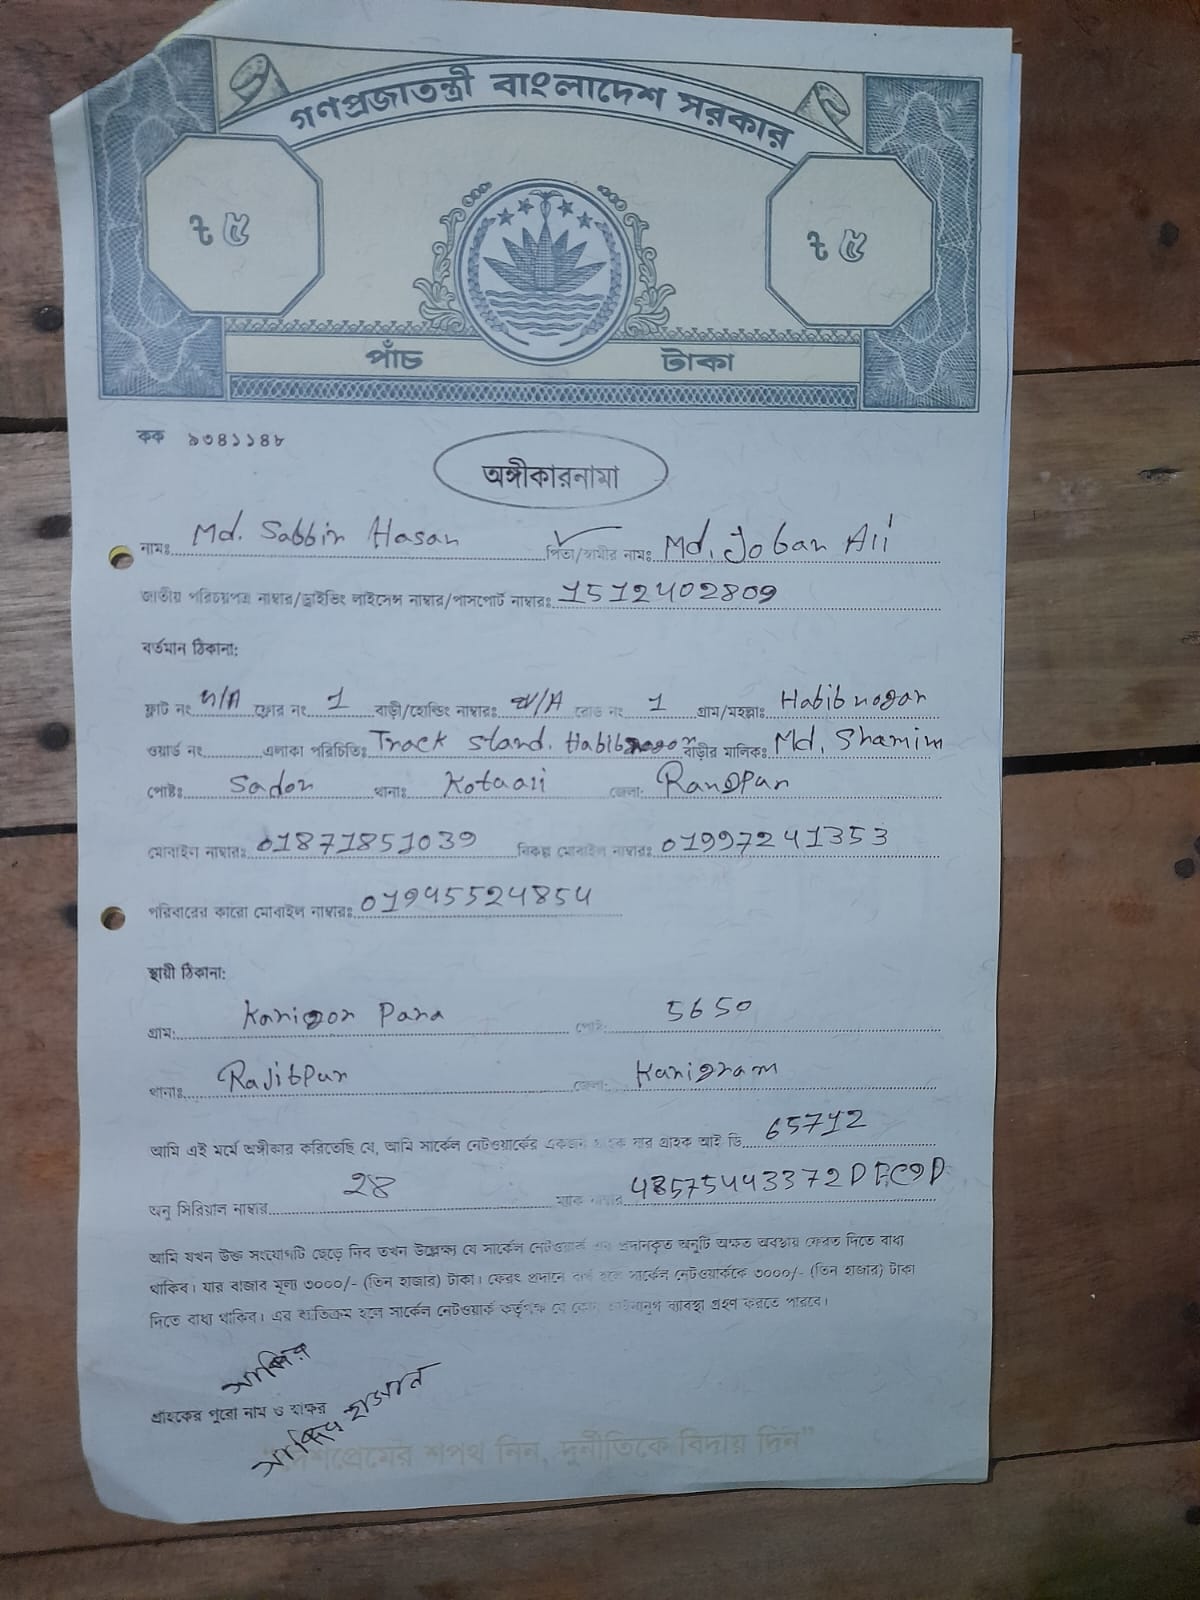 গণপ্রজাতন্ত্রী বাংলাদেশ সরকার
৳ ৫ ৳ ৫
পাঁচ টাকা
কক ৯৩৪১১৪৮
অঙ্গীকারনামা
নামঃ Md. Sabbir Hasan পিতা/স্বামীর নামঃ Md. Joban Ali
জাতীয় পরিচয়পত্র নাম্বার/ড্রাইভিং লাইসেন্স নাম্বার/পাসপোর্ট নাম্বারঃ 1512402809
বর্তমান ঠিকানা:
ফ্লাট নং N/A ফ্লোর নং 1 বাড়ী/হোল্ডিং নাম্বারঃ N/A রোড নং 1 গ্রাম/মহল্লাঃ Habibnagar
ওয়ার্ড নং এলাকা পরিচিতিঃ Track Stand. Habibnagor বাড়ীর মালিকঃ Md. Shamim
পোষ্টঃ Sador থানাঃ Kotaali জেলা: Rangpur
মোবাইল নাম্বারঃ 01871851039 বিকল্প মোবাইল নাম্বারঃ 01997241353
পরিবারের কারো মোবাইল নাম্বারঃ 01945524854
স্থায়ী ঠিকানা:
গ্রাম: Karigor Para পোষ্ট: 5650
থানাঃ Rajibpur জেলা: Kurigram
আমি এই মর্মে অঙ্গীকার করিতেছি যে, আমি সার্কেল নেটওয়ার্কের একজন গ্রাহক যার গ্রাহক আই ডি 65712
অনু সিরিয়াল নাম্বার 28 ম্যাক নাম্বার 48575443372DFC9D
আমি যখন উক্ত সংযোগটি ছেড়ে দিব তখন উল্লেক্ষ্য যে সার্কেল নেটওয়ার্ক এর প্রদানকৃত অনুটি অক্ষত অবস্থায় ফেরত দিতে বাধ্য
থাকিব। যার বাজার মূল্য ৩০০০/- (তিন হাজার) টাকা। ফেরৎ প্রদানে ব্যর্থ হলে সার্কেল নেটওয়ার্ককে ৩০০০/- (তিন হাজার) টাকা
দিতে বাধ্য থাকিব। এর ব্যতিক্রম হলে সার্কেল নেটওয়ার্ক কর্তৃপক্ষ যে কোন আইনানুগ ব্যবস্থা গ্রহণ করতে পারবে।
সাব্বির
গ্রাহকের পুরো নাম ও স্বাক্ষর
সাব্বির হাসান
"দেশপ্রেমের শপথ নিন, দুর্নীতিকে বিদায় দিন"